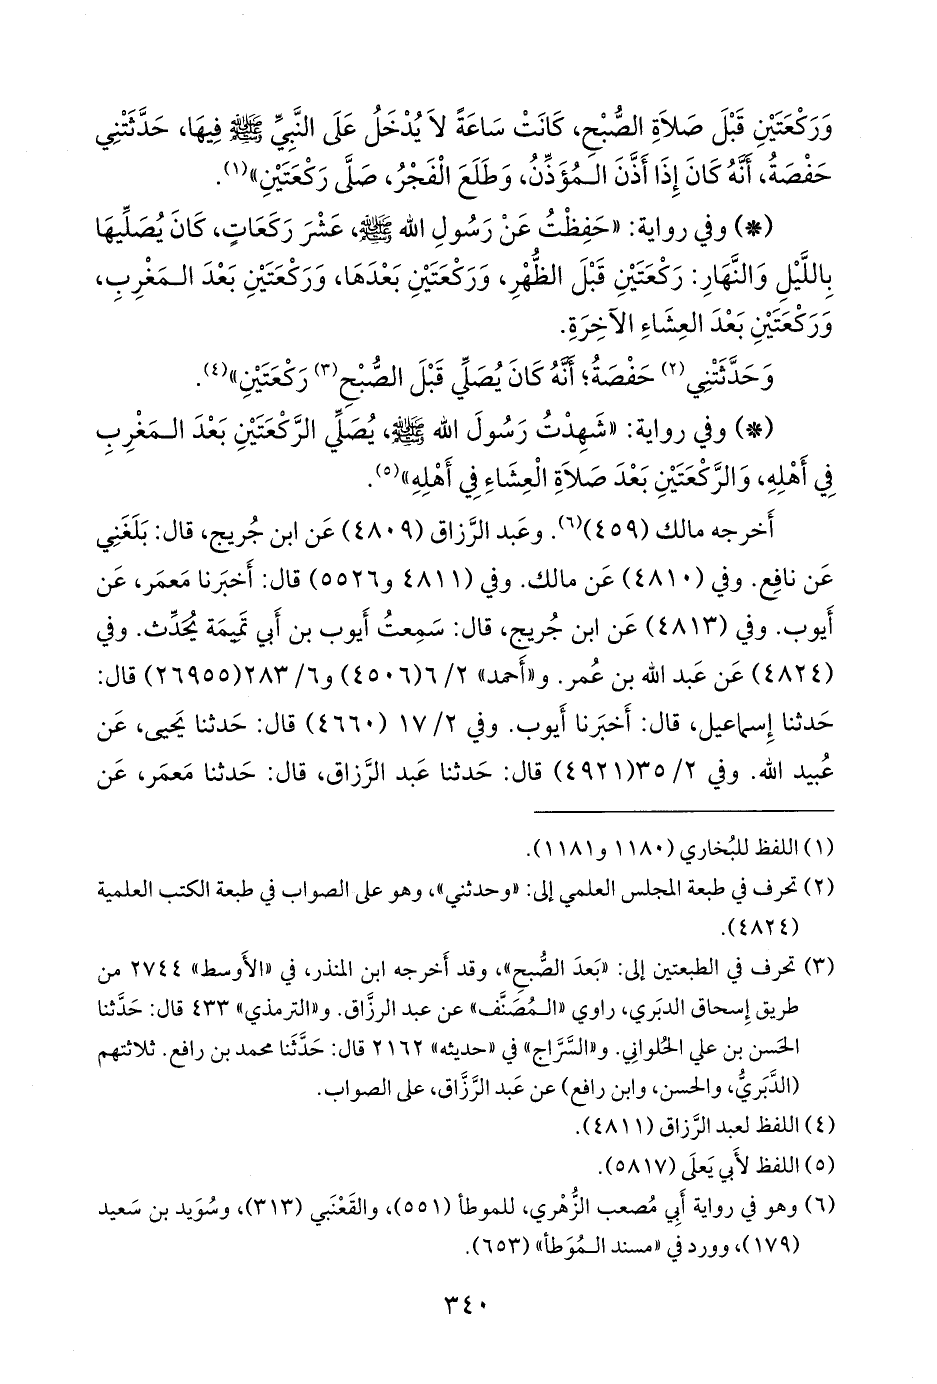 وَرَكْعَتَيْنِ قَبْلَ صَلاَةِ الصُّبْحِ، كَانَتْ سَاعَةً لاَ يُدْخَلُ عَلَى النَّبِيِّ ﷺ فِيهَا، حَدَّثَتْنِي
حَفْصَةُ، أَنَّهُ كَانَ إِذَا أَذَّنَ الـمُؤَذِّنُ، وَطَلَعَ الْفَجْرُ، صَلَّى رَكْعَتَيْنِ»(١).
(*) وفي رواية: «حَفِظْتُ عَنْ رَسُولِ الله ﷺ، عَشْرَ رَكَعَاتٍ، كَانَ يُصَلِّيهَا
بِاللَّيْلِ وَالنَّهَارِ: رَكْعَتَيْنِ قَبْلَ الظُّهْرِ، وَرَكْعَتَيْنِ بَعْدَهَا، وَرَكْعَتَيْنِ بَعْدَ الـمَغْرِبِ،
وَرَكْعَتَيْنِ بَعْدَ العِشَاءِ الآخِرَةِ.
وَحَدَّثَتْنِي(٢) حَفْصَةُ؛ أَنَّهُ كَانَ يُصَلِّي قَبْلَ الصُّبْحِ(٣) رَكْعَتَيْنِ»(٤).
(*) وفي رواية: «شَهِدْتُ رَسُولَ الله ﷺ، يُصَلِّي الرَّكْعَتَيْنِ بَعْدَ الـمَغْرِبِ
فِي أَهْلِهِ، وَالرَّكْعَتَيْنِ بَعْدَ صَلاَةِ الْعِشَاءِ فِي أَهْلِهِ»(٥).
أَخرجه مالك (٤٥٩)(٦). وعَبد الرَّزاق (٤٨٠٩) عَن ابن جُريج، قال: بَلَغَنِي
عَن نافِع. وفي (٤٨١٠) عَن مالك. وفي (٤٨١١ و٥٥٢٦) قال: أَخبَرنا مَعمَر، عَن
أَيوب. وفي (٤٨١٣) عَن ابن جُريج، قال: سَمِعتُ أَيوب بن أَبي تَمِيمَة يُحَدِّث. وفي
(٤٨٢٤) عَن عَبد الله بن عُمر. و«أَحمد» ٢/ ٦(٤٥٠٦) و٦/ ٢٨٣(٢٦٩٥٥) قال:
حَدثنا إِسماعيل، قال: أَخبَرنا أَيوب. وفي ٢/ ١٧ (٤٦٦٠) قال: حَدثنا يَحيى، عَن
عُبيد الله. وفي ٢/ ٣٥(٤٩٢١) قال: حَدثنا عَبد الرَّزاق، قال: حَدثنا مَعمَر، عَن
(١) اللفظ للبُخاري (١١٨٠ و١١٨١).
(٢) تحرف في طبعة المجلس العلمي إلى: «وحدثني»، وهو على الصواب في طبعة الكتب العلمية
(٤٨٢٤).
(٣) تحرف في الطبعتين إلى: «بَعدَ الصُّبح»، وقد أَخرجه ابن المنذر، في «الأَوسط» ٢٧٤٤ من
طريق إِسحاق الدبَري، راوي «الـمُصَنَّف» عن عبد الرزَّاق. و«الترمذي» ٤٣٣ قال: حَدَّثنا
الحَسن بن علي الحُلواني. و«السَّرَّاج» في «حديثه» ٢١٦٢ قال: حَدَّثَنا محمد بن رافع. ثلاثتهم
(الدَّبَريُّ، والحسن، وابن رافع) عن عَبد الرَّزَّاق، على الصواب.
(٤) اللفظ لعبد الرَّزاق (٤٨١١).
(٥) اللفظ لأَبي يَعلَى (٥٨١٧).
(٦) وهو في رواية أَبي مُصعب الزُّهْري، للموطأ (٥٥١)، والقَعْنَبي (٣١٣)، وسُوَيد بن سَعيد
(١٧٩)، وورد في «مسند الـمُوَطأ» (٦٥٣).
٣٤٠